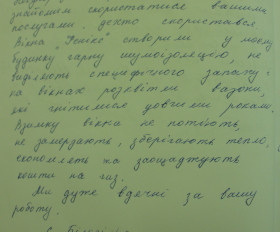 знайомим скористатися вашими
послугами.
Вікна створили у моєму
будинку гарну шумоізоляцію, не
виділяють специфічного запаху і
на вікнах розквітли вазони,
які довгими роками.
Взимку вікна не потіють,
не замерзають, зберігають тепло,
економлять та заощаджують
кошти на газ.
Ми дуже вдячні за вашу
роботу.